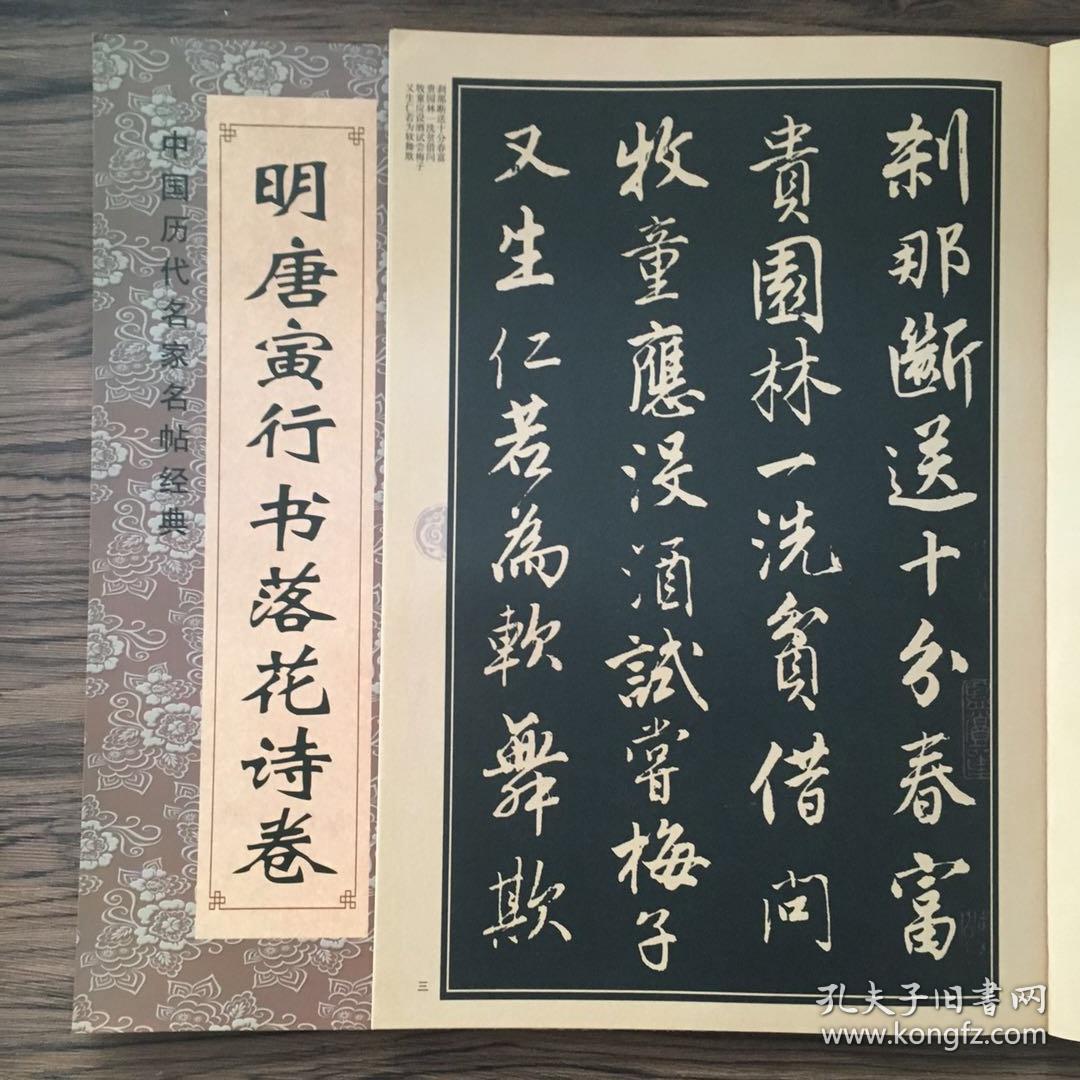 中国历代名家名帖经典
明唐寅行书落花诗卷
刹那断送十分春富
贵园林一洗贫借问
牧童应没酒试尝梅子
又生仁若为软舞欺
刹那斷送十分春富
貴園林一洗貧借問
牧童應没酒試嘗梅子
又生仁若為軟舞欺
三
孔夫子旧书网
www.kongfz.com